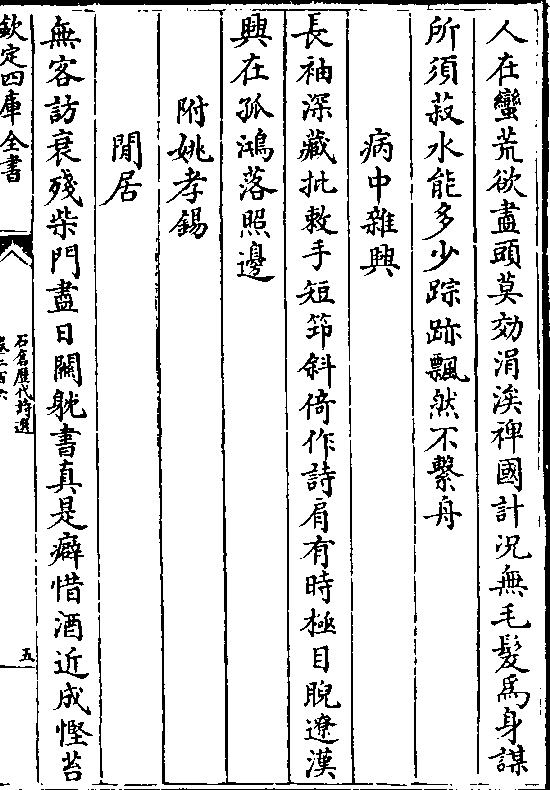 人在蠻荒欲盡頭莫効涓涘裨國計况無毛髮爲身謀
所須菽水能多少踪跡飄然不繫舟
病中雜興
長袖深藏批敕手短筇斜倚作詩肩有時極目睨遼漢
興在孤鴻落照邊
附姚孝錫
閒居
無客訪衰殘柴門盡日關躭書真是癖惜酒近成慳苔
欽定四庫全書
石倉歷代詩選
卷二百六
五